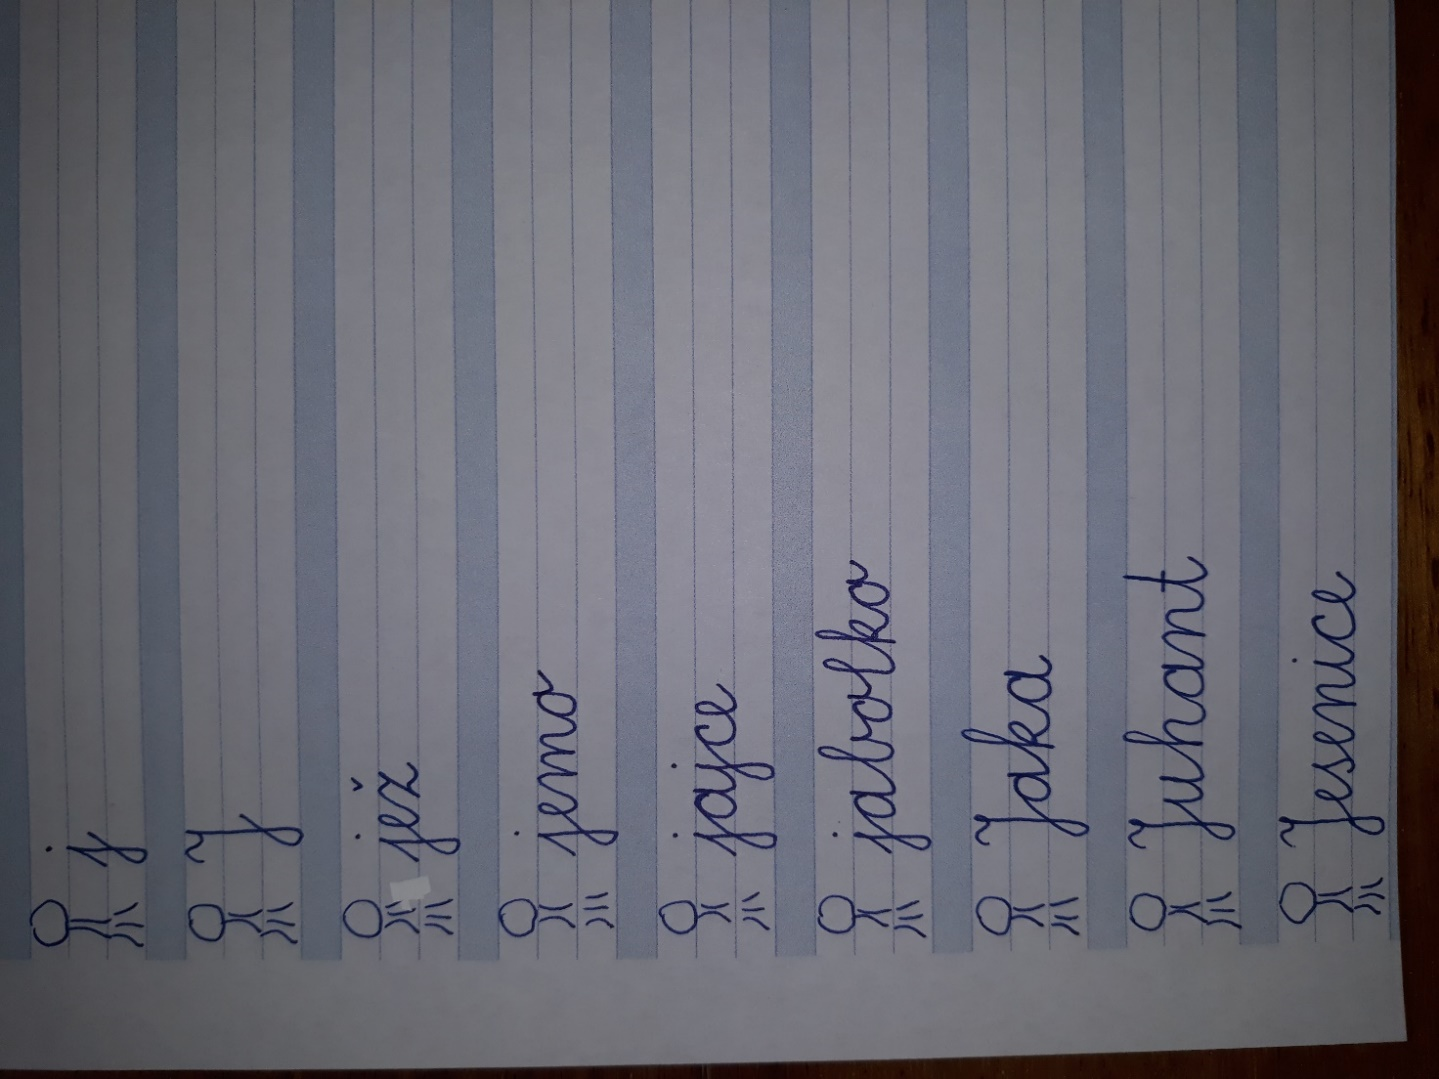 j
J
jež
jemo
jajce
jabolko
Jaka
Juhant
Jesenice